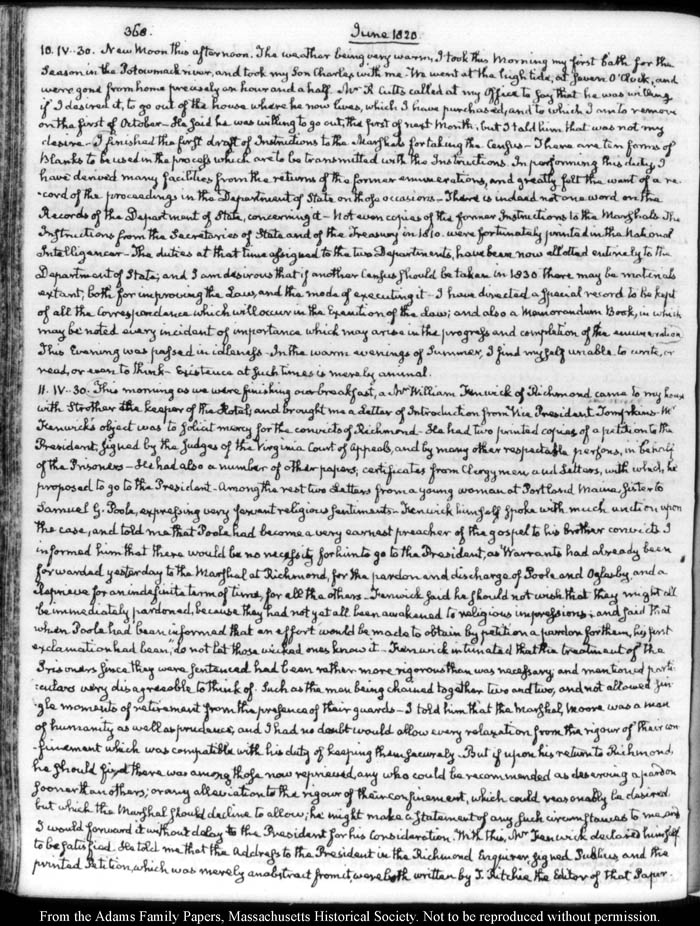 368.
June 1820
10. IV..30. New Moon this afternoon. The weather being very warm, I took this Morning my first bath for the
Season in the Potowmack river, and took my Son Charles with me. We went at the high tide, at Seven O'Clock, and
were gone from home precisely an hour and a half. Mr R Cutts called at my Office to say that he was willing
if I desired it, to go out of the house where he now lives, which I have purchased, and to which I am to remove
on the first of October. He said he was willing to go out, the first of next Month; but I told him that was not my
desire. I finished the first draft of Instructions to the Marshals for taking the Census. There are ten forms of
blanks to be used in the process which are to be transmitted with the Instructions. In performing this duty, I
have derived many facilities from the returns of the former enumerations, and greatly felt the want of a re-
-cord of the proceedings in the Department of State on those occasions. There is indeed not one word on the
Records of the Department of State, concerning it. Not even copies of the former Instructions to the Marshals. The
Instructions from the Secretaries of State and of the Treasury in 1810. were fortunately printed in the National
Intelligencer. The duties at that time assigned to the two Departments, have been now allotted entirely to the
Department of State; and I am desirous that if another Census should be taken in 1830 there may be materials
extant, both for improving the Law, and the mode of executing it. I have directed a special record to be kept
of all the Correspondence which will occur in the Execution of the Law; and also a Memorandum Book, in which
may be noted every incident of importance which may arise in the progress and completion of the enumeration.
This Evening was passed in idleness. In the warm evenings of Summer, I find myself unable to write, or
read, or even to think. Existence at such times is merely animal.
11. IV.30. This morning as we were finishing our breakfast, a Mr William Fenwick of Richmond came to my house
with Strother the keeper of the Hotel, and brought me a Letter of Introduction from Vice President Tompkins. Mr
Fenwick's object was to solicit mercy for the convicts of Richmond. He had two printed copies of a petition to the
President, signed by the Judges of the Virginia Court of Appeals, and by many other respectable persons, in behalf
of the Prisoners. He had also a number of other papers, certificates from Clergymen and Letters, with which, he
proposed to go to the President. Among the rest two Letters from a young woman at Portland Maine, sister to
Samuel G. Poole, expressing very fervent religious sentiments. Fenwick himself spoke with much unction upon
the case, and told me that Poole had become a very earnest preacher of the gospel to his brother convicts. I
informed him that there would be no necessity for him to go to the President, as Warrants had already been
forwarded yesterday to the Marshal at Richmond, for the pardon and discharge of Poole and Oglesby, and a
Reprieve for an indefinite term of time, for all the others. Fenwick said he should not wish that they might all
be immediately pardoned, because they had not yet all been awakened to religious impressions; and said that
when Poole had been informed that an effort would be made to obtain by petition a pardon for them, his first
exclamation had been, do not let those wicked ones know it. Fenwick intimated that the treatment of the
Prisoners since they were sentenced had been rather more rigorous than was necessary; and mentioned parti-
-culars very disagreeable to think of. Such as the men being chained together two and two, and not allowed sin-
gle moments of retirement from the presence of their guards. I told him that the Marshal, Moore was a man
of humanity as well as prudence, and I had no doubt would allow every relaxation from the rigour of their con-
-finement which was compatible with his duty of keeping them securely. But if upon his return to Richmond,
he should find there was among those now reprieved, any who could be recommended as deserving a pardon
sooner than others; or any alleviation to the rigour of their confinement, which could reasonably be desired
but which the Marshal should decline to allow; he might make a Statement of any such circumstances to me, and
I would forward it without delay to the President for his consideration. With this, Mr Fenwick declared himself
to be satisfied. He told me that the Address to the President in the Richmond Enquirer, signed Publius and the
printed Petition, which was merely an abstract from it, were both written by T. Ritchie the Editor of that Paper
From the Adams Family Papers, Massachusetts Historical Society. Not to be reproduced without permission.